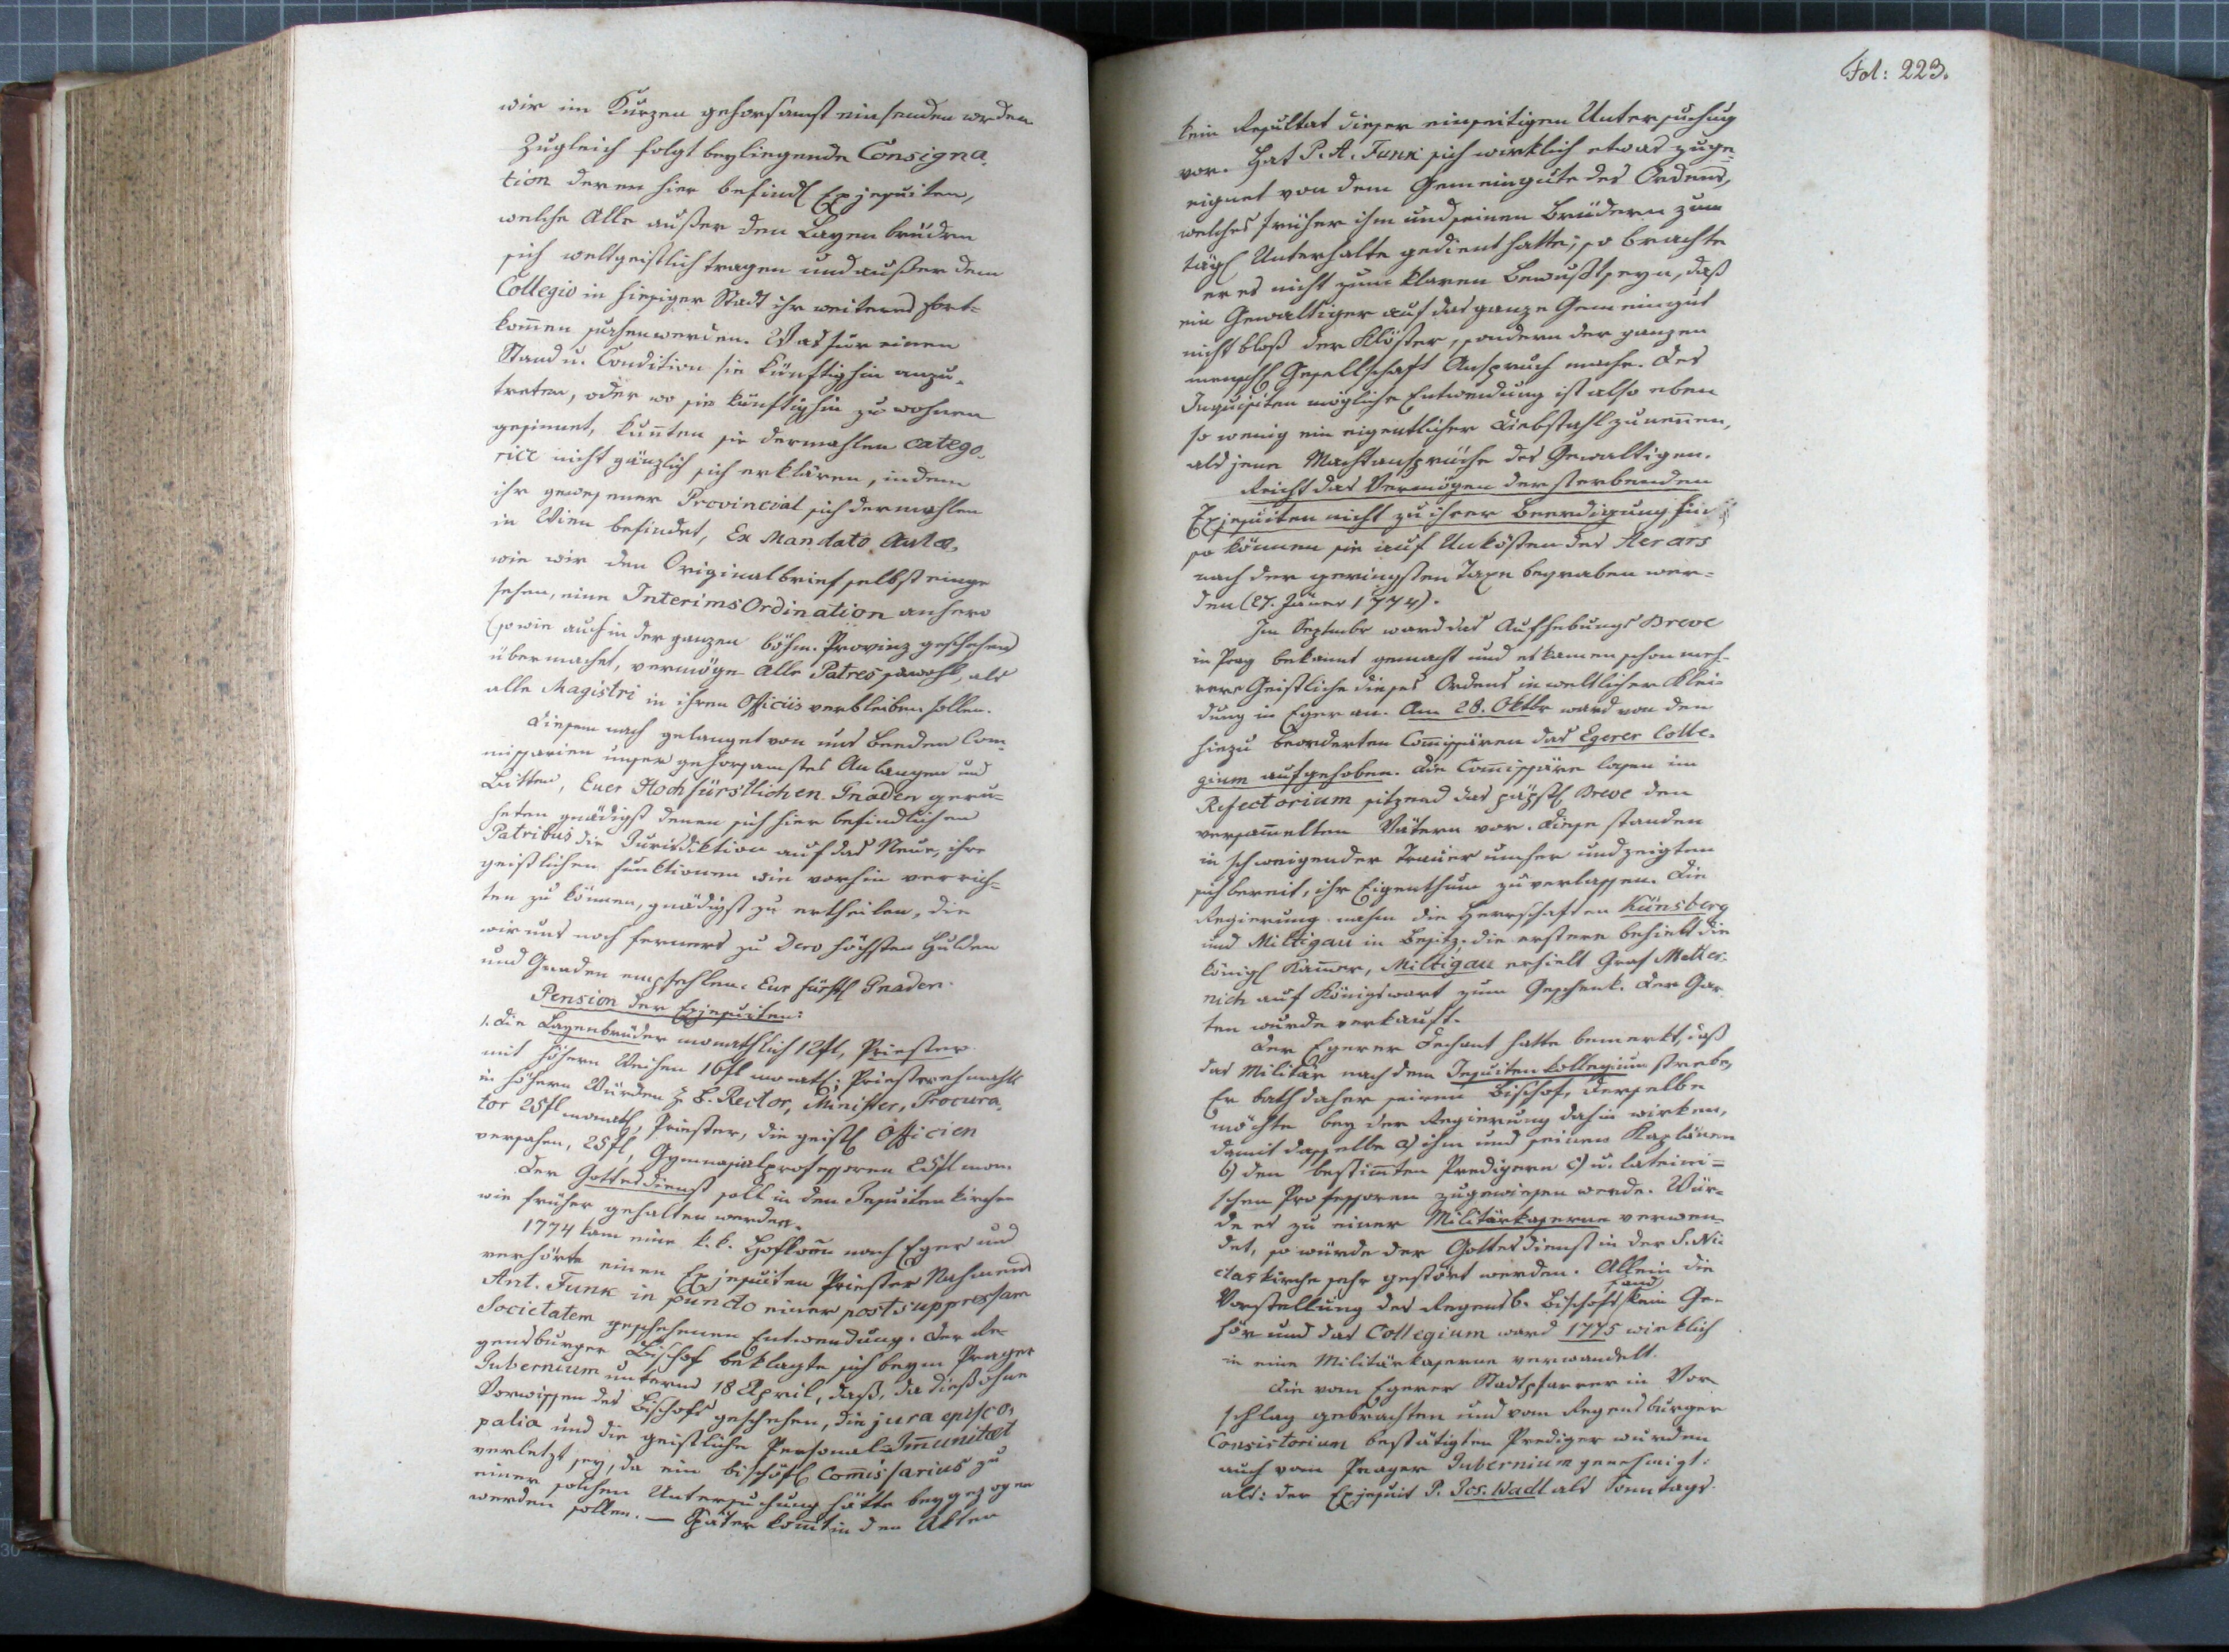 wir im Kurzen gehorsamst einsenden werden.
Zugleich folgt beyliegende Consigna-
tion deren hier befindl Exjesuiten,
welche Alle außer den Layenbrüdern
sich weltgeistlich tragen und außer dem
Collegio in hiesiger Stadt ihr weiteres Fort-
kom̄en suchen werden. Was für einen
Stand u. Condition sie künftighin anzu-
treten, oder wo sie künftighin zu wohnen
gesinnet, kun̄ten sie dermahlen catego-
rice nicht gänzlich sich erklären, indem
ihr gewesener Provincial sich dermahlen
in Wien befindet, Ex Mandato Aulæ,
wie wir den Originalbrief selbst einge
sehen, eine Interims Ordination anhero
(so wie auch in der ganzen böhm. Provinz geschehen)
übermachet, vermöge Alle Patres sowohl, als
alle Magistri in ihren Officiis verbleiben sollen.
Diesem nach gelanget von uns beeden Com-
missarien unser gehorsamstes Anlangen und
Bitten, Euer Hochfürstlichen Gnaden geru-
heten gnädigst denen sich hier befindlichen
Patribus die Jurisdiktion auf das Neue, ihre
geistlichen Funktionen wie vorhin verrich-
ten zu können, gnädigst zu ertheilen, die
wir uns noch ferners zu Dero höchsten Hulden
und Gnaden empfehlen. Eur fürstl Gnaden.
Pension der Exjesuiten:
1. Die Layenbrüder monathlich 12fl, Priester
mit höhern Weihen 16fl monatl; Priester ehmahls
in höhern Würden z. B. Rector, Minister, Procura-
tor 25fl monatl, Priester, die geistl Officien
versahen, 25fl, Gymnasialprofessoren 25fl mon.
Der Gottesdienst soll in den Jesuitenkirchen
wie früher gehalten werden.
1774 kam eine k. k. Hofkom̄ nach Eger und
verhörte einen Exjesuiten Priester Nahmens
Ant. Funk in puncto einer post suppressam
Societatem geschehenen Entwendung. Der Re-
gensburger Bischof beklagte sich beym Prager
Gubernium unterm 18 April, daß, da dieß ohne
Vorwissen des Bischofs geschehen, die jura episco-
palia und die geistliche Personal-Im̄unitæt
verletzt sey, da ein bischöfl Com̄issarius zu
einer solchen Untersuchung hätte beygezogen
werden sollen. — Später kom̄t in den Akten
Fol: 223.
kein Resultat dieser einseitigen Untersuchung
vor. Hat P. A. Funk sich wirklich etwas zuge-
eignet von dem Gemeingute des Ordens,
welches früher ihm und seinen Brüdern zum
tägl Unterhalte gedient hatte; so brachte
er es nicht zum klaren Bewußtseyn, daß
ein Gewaltiger auf das ganze Gemeingut
nicht bloß der Klöster, sondern der ganzen
menschl Gesellschaft Anspruch mache. Des
Inquisiten mögliche Entwendung ist also eben
so wenig ein eigentlicher Diebstahl zu nen̄en,
als jene Machtansprüche des Gewaltigen.
Reicht das Vermögen der sterbenden
Exjesuiten nicht zu ihrer Beerdigung hin
so können sie auf Unkosten des Aerars
nach der geringsten Taxe begraben wer-
den (27. Jäner 1774).
Im Septembr ward das Aufhebungs Breve
in Prag bekannt gemacht und es kamen schon meh-
rere Geistliche dieses Ordens in weltlicher Klei-
dung in Eger an. Am 28. Oktbr ward von den
hiezu beorderten Com̄issären das Egerer Colle-
gium aufgehoben. Die Com̄issäre lasen im
Refectorium sitzend das päpstl Breve den
versam̄elten Vätern vor. Diese standen
in schweigender Trauer umher und zeigten
sich bereit, ihr Eigenthum zu verlassen. Die
Regierung nahm die Herrschaften Künsberg
und Miltigau in Besitz; die erstere behielt die
königl Kam̄er, Miltigau erhielt Graf Metter-
nich auf Königswart zum Geschenk. Der Gar-
ten wurde verkauft.
Der Egerer Dechant hatte bemerkt, daß
das Militär nach dem Jesuitenkollegium strebe,
Er bath daher seinen Bischof, derselbe
möchte bey der Regierung dahin wirken,
damit dasselbe a) ihm und seinen Kaplänen
b) den bestim̄ten Predigern c) u. lateini-
schen Professoren zugewiesen werde. Wür-
de es zu einer Militärkaserne verwen-
det, so würde der Gottesdienst in der S. Ni-
claskirche sehr gestört werden. Allein die
Vorstellung des Regensb. Bischofs fand kein Ge-
hör und das Collegium ward 1775 wirklich
in eine Militärkaserne verwandelt.
Die vom Egerer Stadtpfarrer in Vor-
schlag gebrachten und vom Regensburger
Consistorium bestätigten Prediger wurden
auch vom Prager Gubernium genehmigt:
als: der Exjesuit P. Jos. Wadl als Sonntags-